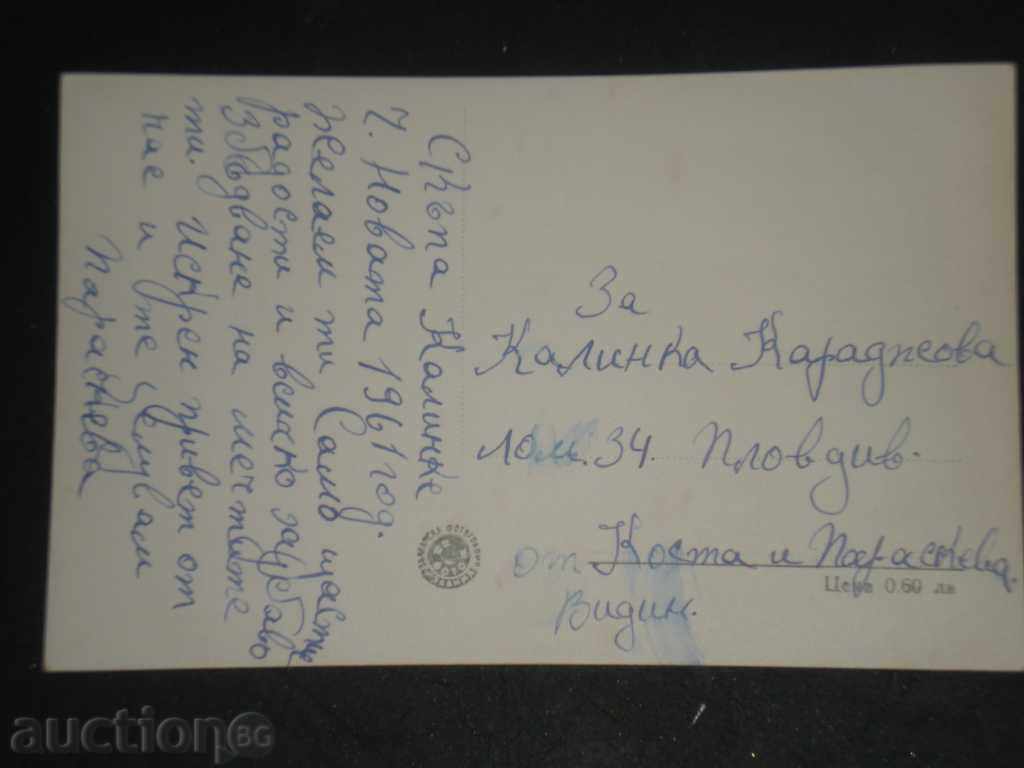 Скъпа Калинке
Ч. Новата 1961 год.
Желаем ти Само щастие
радости и всичко хубаво
Взбъдване на мечтите
ти. Искрен привет от
нас и те целувам
Параскева
За
Калинка Караджова
Лом. 34. Пловдив.
от Коста и Параскева.
Видин.
Цена 0.60 лв
auction BG